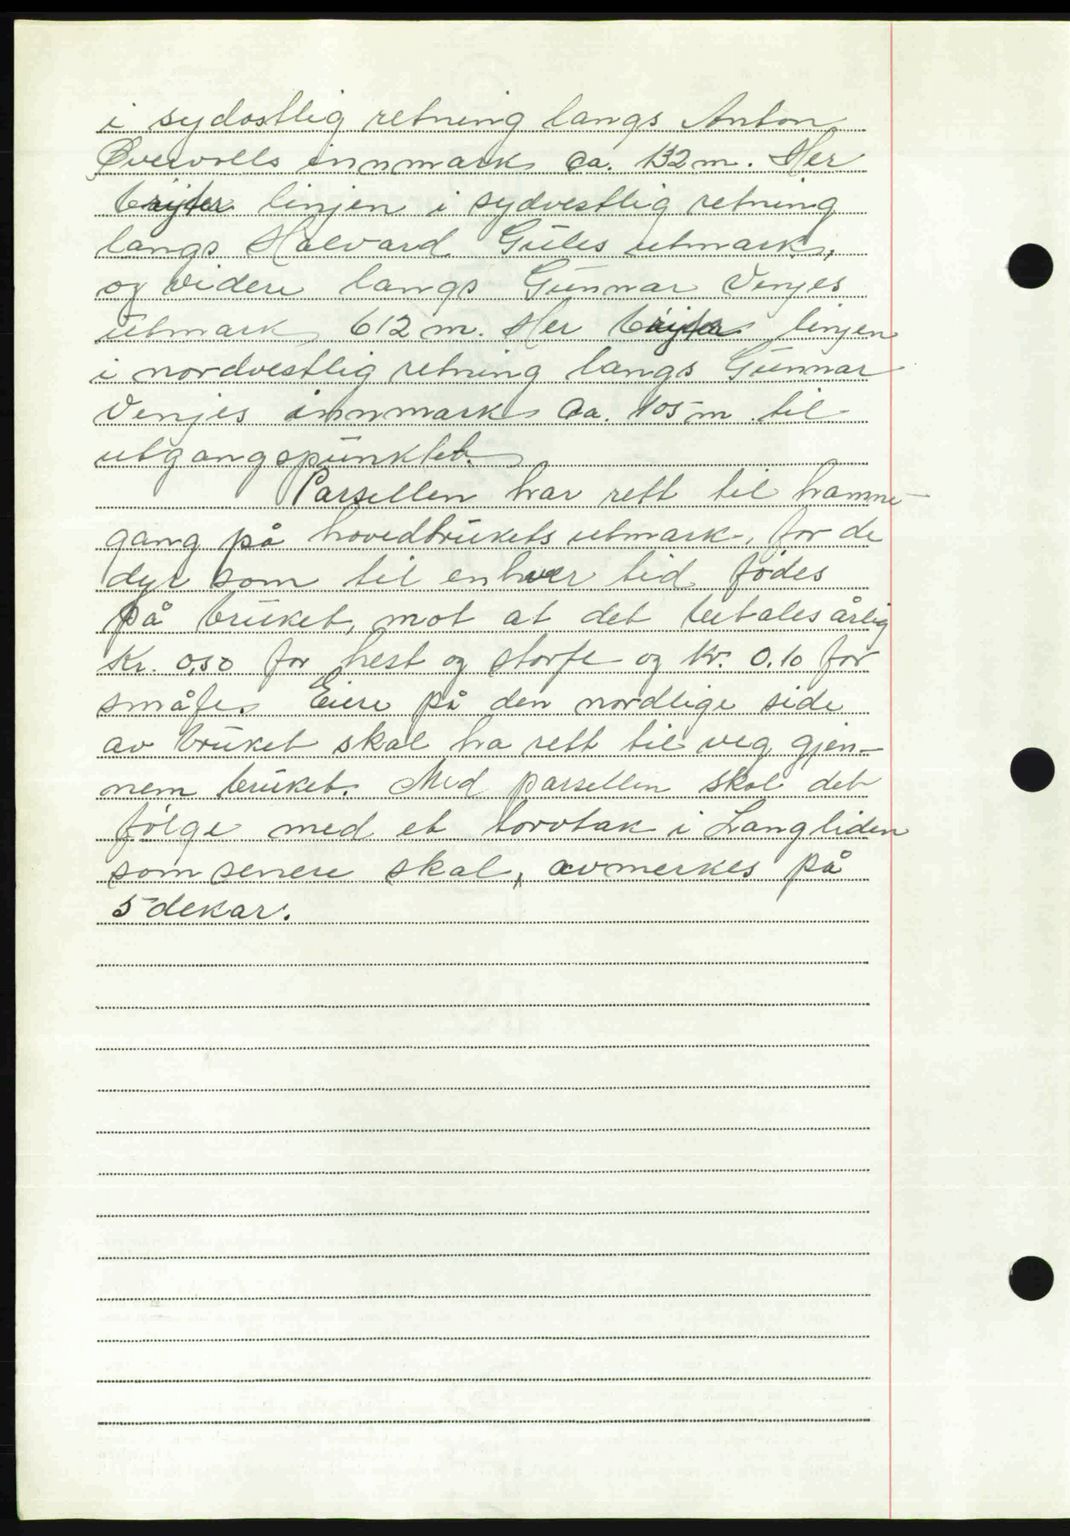 i sydostlig retning langs Anton
Øvervolls innmark ca. 132 m. Her
bøyer linjen i sydvestlig retning
langs Halvard Gules utmark,
og videre langs Gunnar Venjes
utmark 612 m. Her bøyer linjen
i nordvestlig retning langs Gunnar
Venjes innmark ca. 105 m til
utgangspunktet.
Parsellen har rett til hamne-
gang på hovedbrukets utmark, for de
dyr som til enhver tid fødes
på bruket, mot at det betales årlig
Kr. 0,50 for hest og storfe og kr. 0.10 for
småfe. Eiere på den nordlige side
av bruket skal ha rett til veg gjen-
nem bruket. Med parsellen skal det
følge med et torvtak i Langliden
som senere skal, avmerkes på
5 dekar.